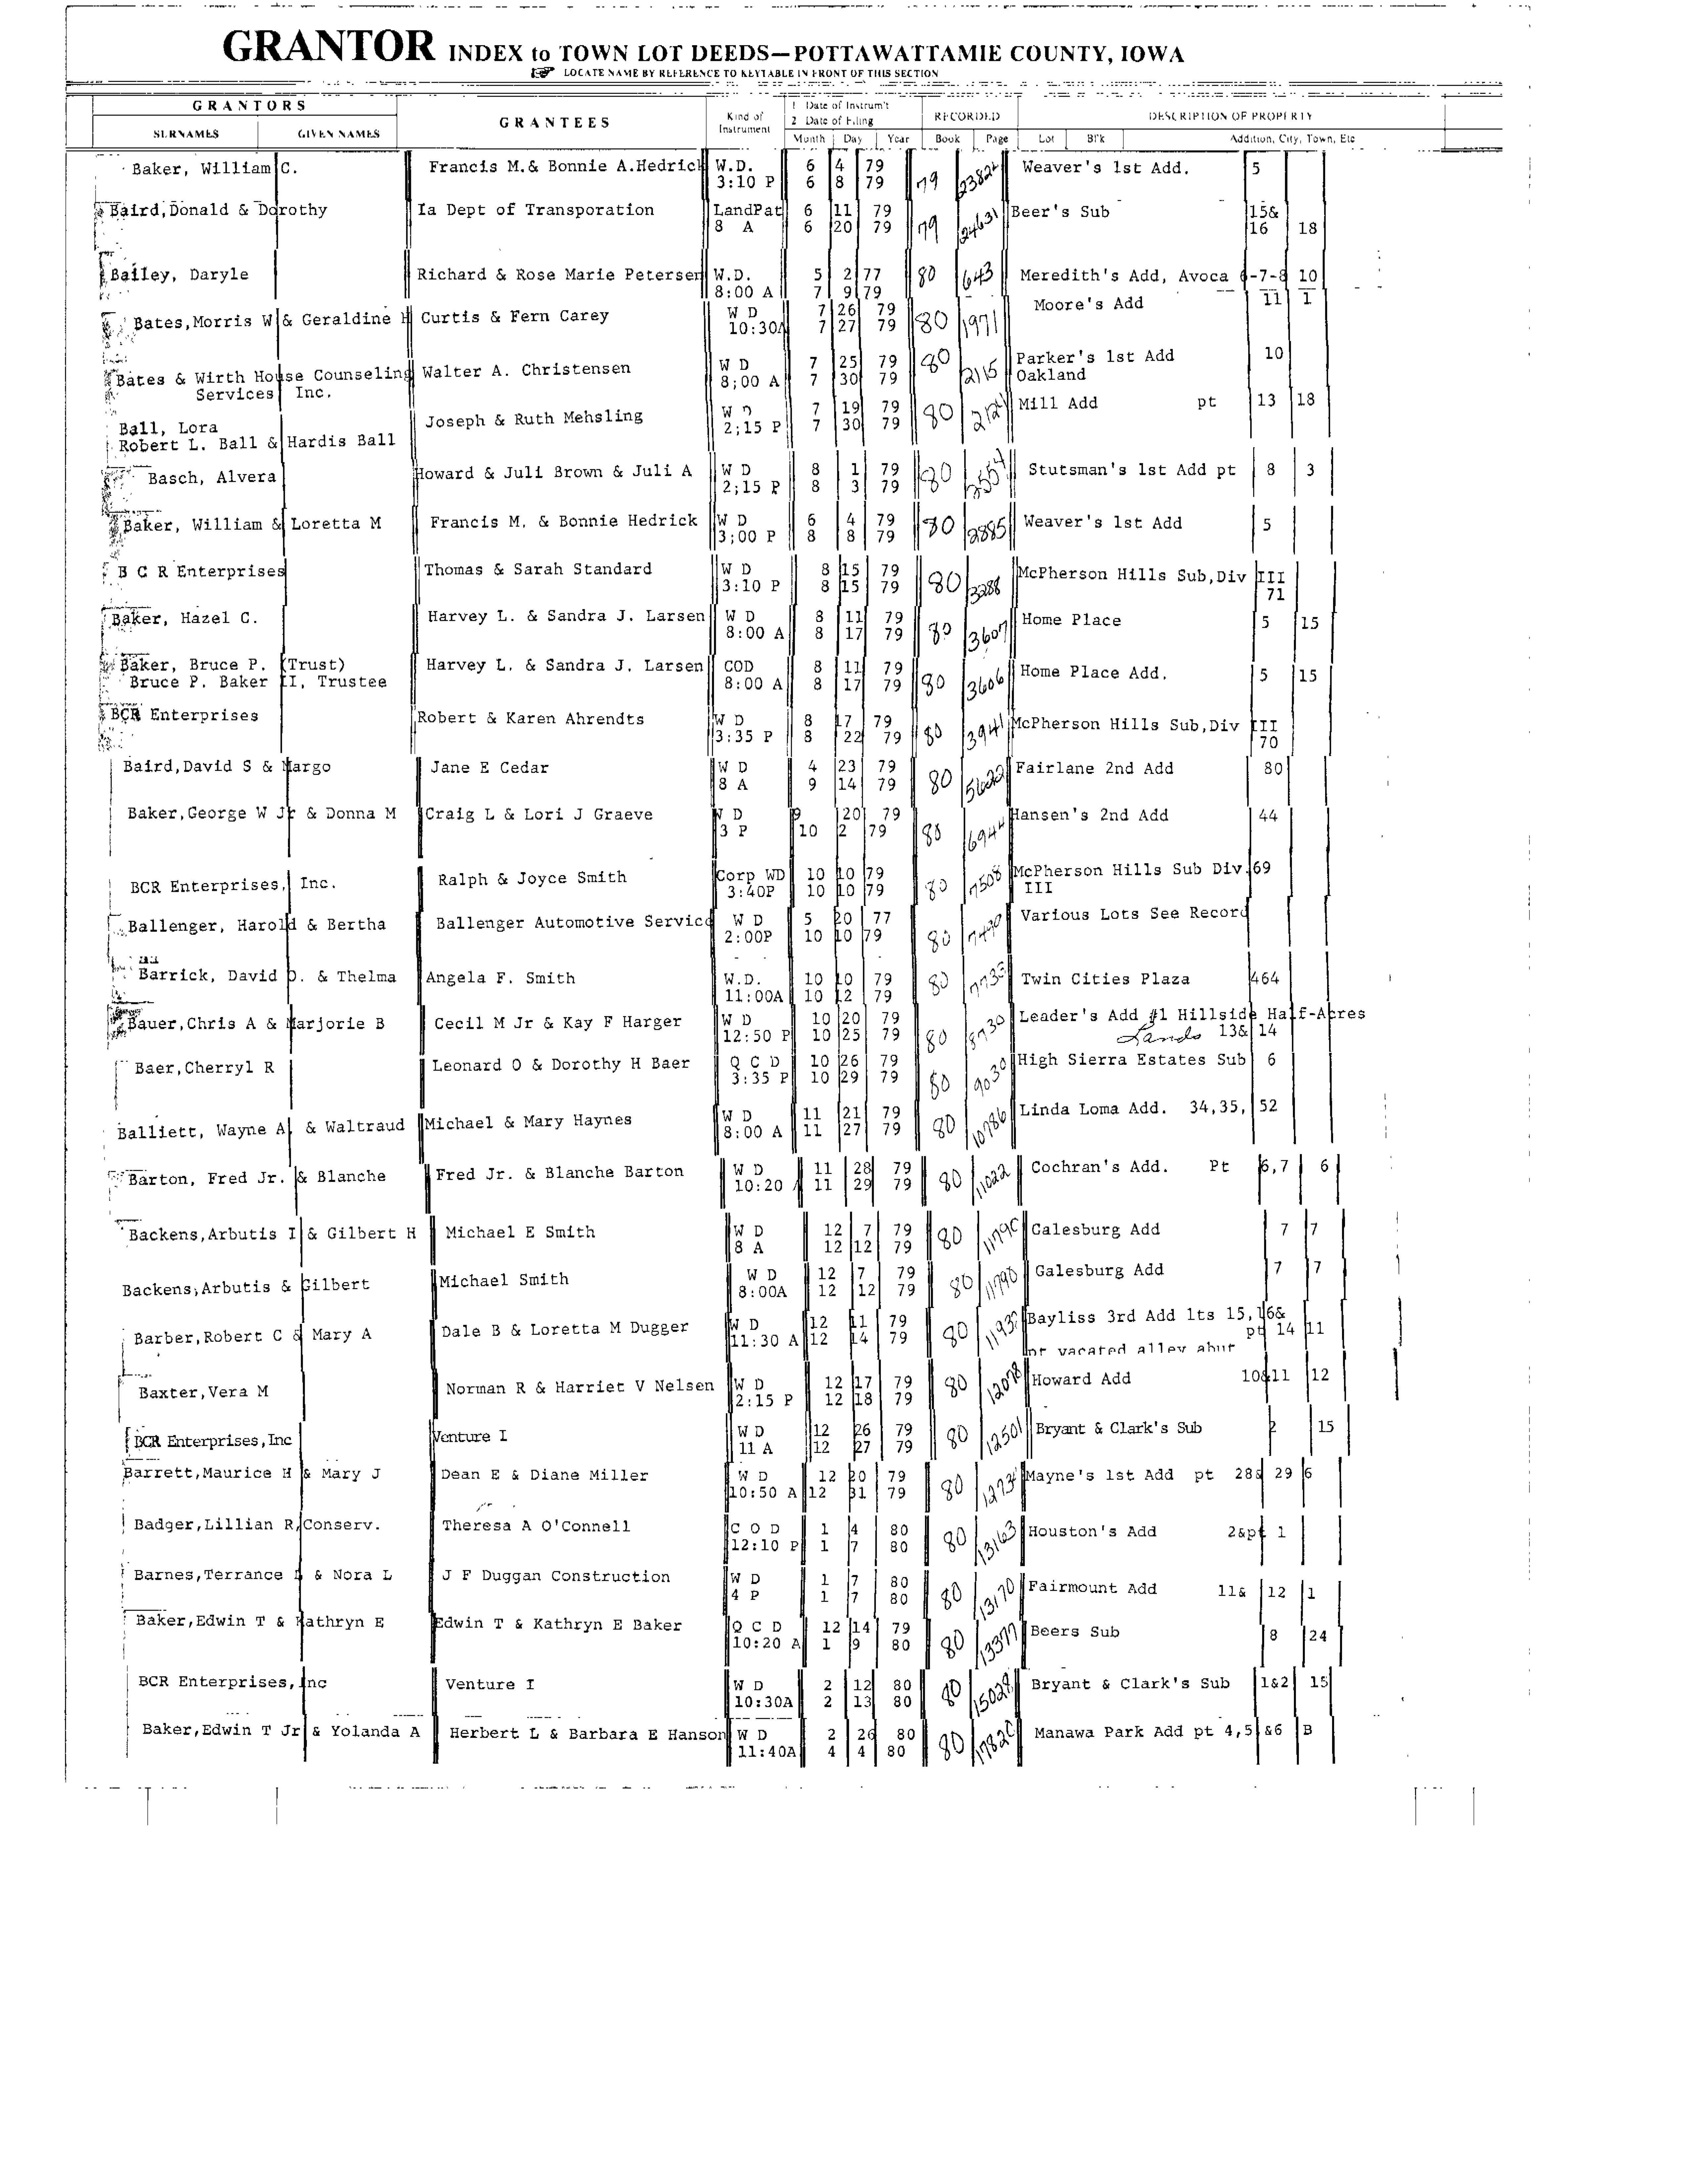 GRANTOR INDEX to TOWN LOT DEEDS—POTTAWATTAMIE COUNTY, IOWA
LOCATE NAME BY REFERENCE TO KEYTABLE IN FRONT OF THIS SECTION
GRANTORS
SURNAMES GIVEN NAMES
GRANTEES
Kind of Instrument
1 Date of Instrum't
2 Date of Filing
Month Day Year
RECORDED
Book Page
DESCRIPTION OF PROPERTY
Lot Bl'k Addition, City, Town, Etc
Baker, William C. Francis M.& Bonnie A.Hedrick W.D. 6 4 79 79 23824 Weaver's 1st Add. 5
3:10 P 6 8 79
Baird,Donald & Dorothy Ia Dept of Transporation LandPat 6 11 79 79 24631 Beer's Sub 15&
8 A 6 20 79 16 18
Bailey, Daryle Richard & Rose Marie Petersen W.D. 5 2 77 80 643 Meredith's Add, Avoca 6-7-8 10
8:00 A 7 9 79
Bates,Morris W & Geraldine H Curtis & Fern Carey W D 7 26 79 80 1971 Moore's Add 11 1
10:30A 7 27 79
Bates & Wirth House Counseling Walter A. Christensen W D 7 25 79 80 2115 Parker's 1st Add 10
Services Inc. 8;00 A 7 30 79 Oakland
Ball, Lora Joseph & Ruth Mehsling W D 7 19 79 80 Mill Add pt 13 18
Robert L. Ball & Hardis Ball 2;15 P 7 30 79
Basch, Alvera Howard & Juli Brown & Juli A W D 8 1 79 80 Stutsman's 1st Add pt 8 3
2;15 P 8 3 79
Baker, William & Loretta M Francis M. & Bonnie Hedrick W D 6 4 79 80 2885 Weaver's 1st Add 5
3;00 P 8 8 79
B C R Enterprises Thomas & Sarah Standard W D 8 15 79 80 3288 McPherson Hills Sub,Div III
3:10 P 8 15 79 71
Baker, Hazel C. Harvey L. & Sandra J. Larsen W D 8 11 79 80 3607 Home Place 5 15
8:00 A 8 17 79
Baker, Bruce P. (Trust) Harvey L. & Sandra J. Larsen COD 8 11 79 80 3606 Home Place Add. 5 15
Bruce P. Baker II, Trustee 8:00 A 8 17 79
BCR Enterprises Robert & Karen Ahrendts W D 8 17 79 80 3941 McPherson Hills Sub,Div III
3:35 P 8 22 79 70
Baird,David S & Margo Jane E Cedar W D 4 23 79 80 5622 Fairlane 2nd Add 80
8 A 9 14 79
Baker,George W Jr & Donna M Craig L & Lori J Graeve W D 9 20 79 80 6944 Hansen's 2nd Add 44
3 P 10 2 79
BCR Enterprises, Inc. Ralph & Joyce Smith Corp WD 10 10 79 80 7508 McPherson Hills Sub Div. 69
3:40P 10 10 79 III
Ballenger, Harold & Bertha Ballenger Automotive Service W D 5 20 77 80 7490 Various Lots See Record
2:00P 10 10 79
Barrick, David D. & Thelma Angela F. Smith W.D. 10 10 79 80 7733 Twin Cities Plaza 464
11:00A 10 12 79
Bauer,Chris A & Marjorie B Cecil M Jr & Kay F Harger W D 10 20 79 80 8730 Leader's Add #1 Hillside Half-Acres
12:50 P 10 25 79 Lands 13& 14
Baer,Cherryl R Leonard O & Dorothy H Baer Q C D 10 26 79 80 9030 High Sierra Estates Sub 6
3:35 P 10 29 79
Balliett, Wayne A. & Waltraud Michael & Mary Haynes W D 11 21 79 80 10786 Linda Loma Add. 34,35, 52
8:00 A 11 27 79
Barton, Fred Jr. & Blanche Fred Jr. & Blanche Barton W D 11 28 79 80 11022 Cochran's Add. Pt 6,7 6
10:20 A 11 29 79
Backens,Arbutis I & Gilbert H Michael E Smith W D 12 7 79 80 11790 Galesburg Add 7 7
8 A 12 12 79
Backens,Arbutis & Gilbert Michael Smith W D 12 7 79 80 11790 Galesburg Add 7 7
8:00A 12 12 79
Barber,Robert C & Mary A Dale B & Loretta M Dugger W D 12 11 79 80 Bayliss 3rd Add lts 15,16&
11:30 A 12 14 79 pt 14 11
pt vacated alley abut
Baxter,Vera M Norman R & Harriet V Nelsen W D 12 17 79 80 12078 Howard Add 10&11 12
2:15 P 12 18 79
BCR Enterprises,Inc Venture I W D 12 26 79 80 12501 Bryant & Clark's Sub 2 15
11 A 12 27 79
Barrett,Maurice H & Mary J Dean E & Diane Miller W D 12 20 79 80 Mayne's 1st Add pt 28& 29 6
10:50 A 12 31 79
Badger,Lillian R,Conserv. Theresa A O'Connell C O D 1 4 80 80 13163 Houston's Add 2&pt 1
12:10 P 1 7 80
Barnes,Terrance L & Nora L J F Duggan Construction W D 1 7 80 80 13170 Fairmount Add 11& 12 1
4 P 1 7 80
Baker,Edwin T & Kathryn E Edwin T & Kathryn E Baker Q C D 12 14 79 80 13377 Beers Sub 8 24
10:20 A 1 9 80
BCR Enterprises,Inc Venture I W D 2 12 80 80 15028 Bryant & Clark's Sub 1&2 15
10:30A 2 13 80
Baker,Edwin T Jr & Yolanda A Herbert L & Barbara E Hanson W D 2 26 80 80 17820 Manawa Park Add pt 4,5 &6 B
11:40A 4 4 80